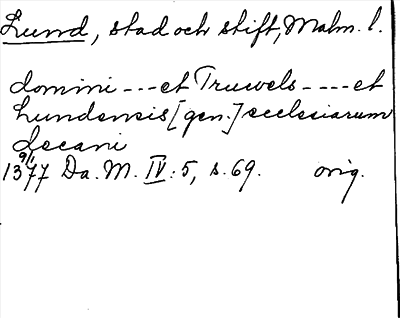 Lund, stad och stift, Malm. l.
domini --- et Truwels ---- et
Lundensis [gen.] ecclesiarum
decani
9/1 1377 Da. M. IV: 5, s. 69. orig.